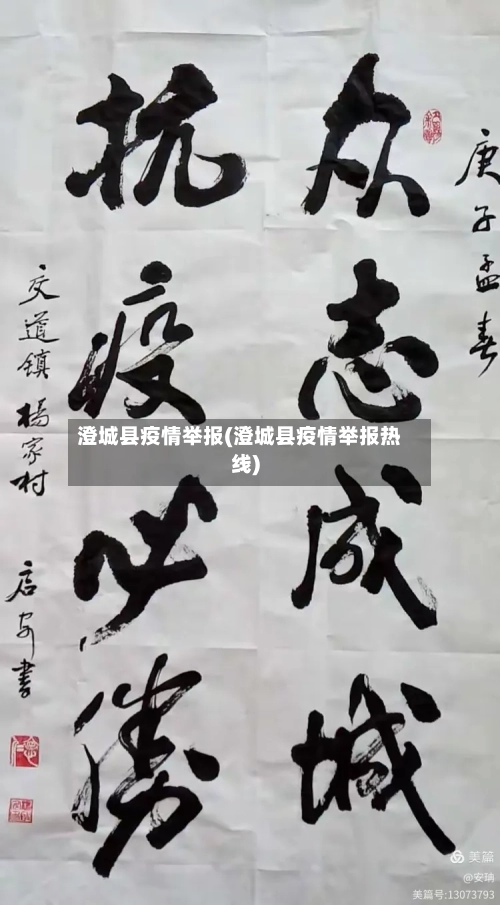 庚子孟春
众志成城
抗疫必勝
交道镇 楊家村
启安書
澄城县疫情举报(澄城县疫情举报热
线)
美篇
@安瑀
美篇号:13073793